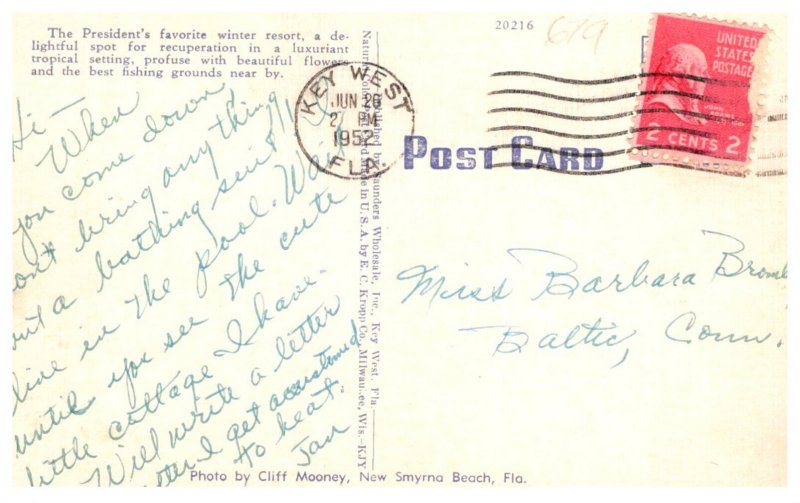 The President's favorite winter resort, a de-
lightful spot for recuperation in a luxuriant
tropical setting, profuse with beautiful flowers
and the best fishing grounds near by.
Hi -
When
you come down
on't bring anything
but a bathing suit. We'll
live in the pool. Wait
until you see the cute
little cottage I have.
Will write a letter
after I get accustomed
to heat.
Jan
Photo by Cliff Mooney, New Smyrna Beach, Fla.
Natural Color Published by Saunders Wholesale, Inc., Key West, Fla.
Made in U.S.A. by E. C. Kropp Co., Milwaukee, Wis.-KJY
20216
679
KEY WEST
JUN 26
2 PM
1952
FLA
POST CARD
UNITED
STATES
POSTAGE
JOHN
2 CENTS 2
Miss Barbara Bromb
Baltic, Conn.